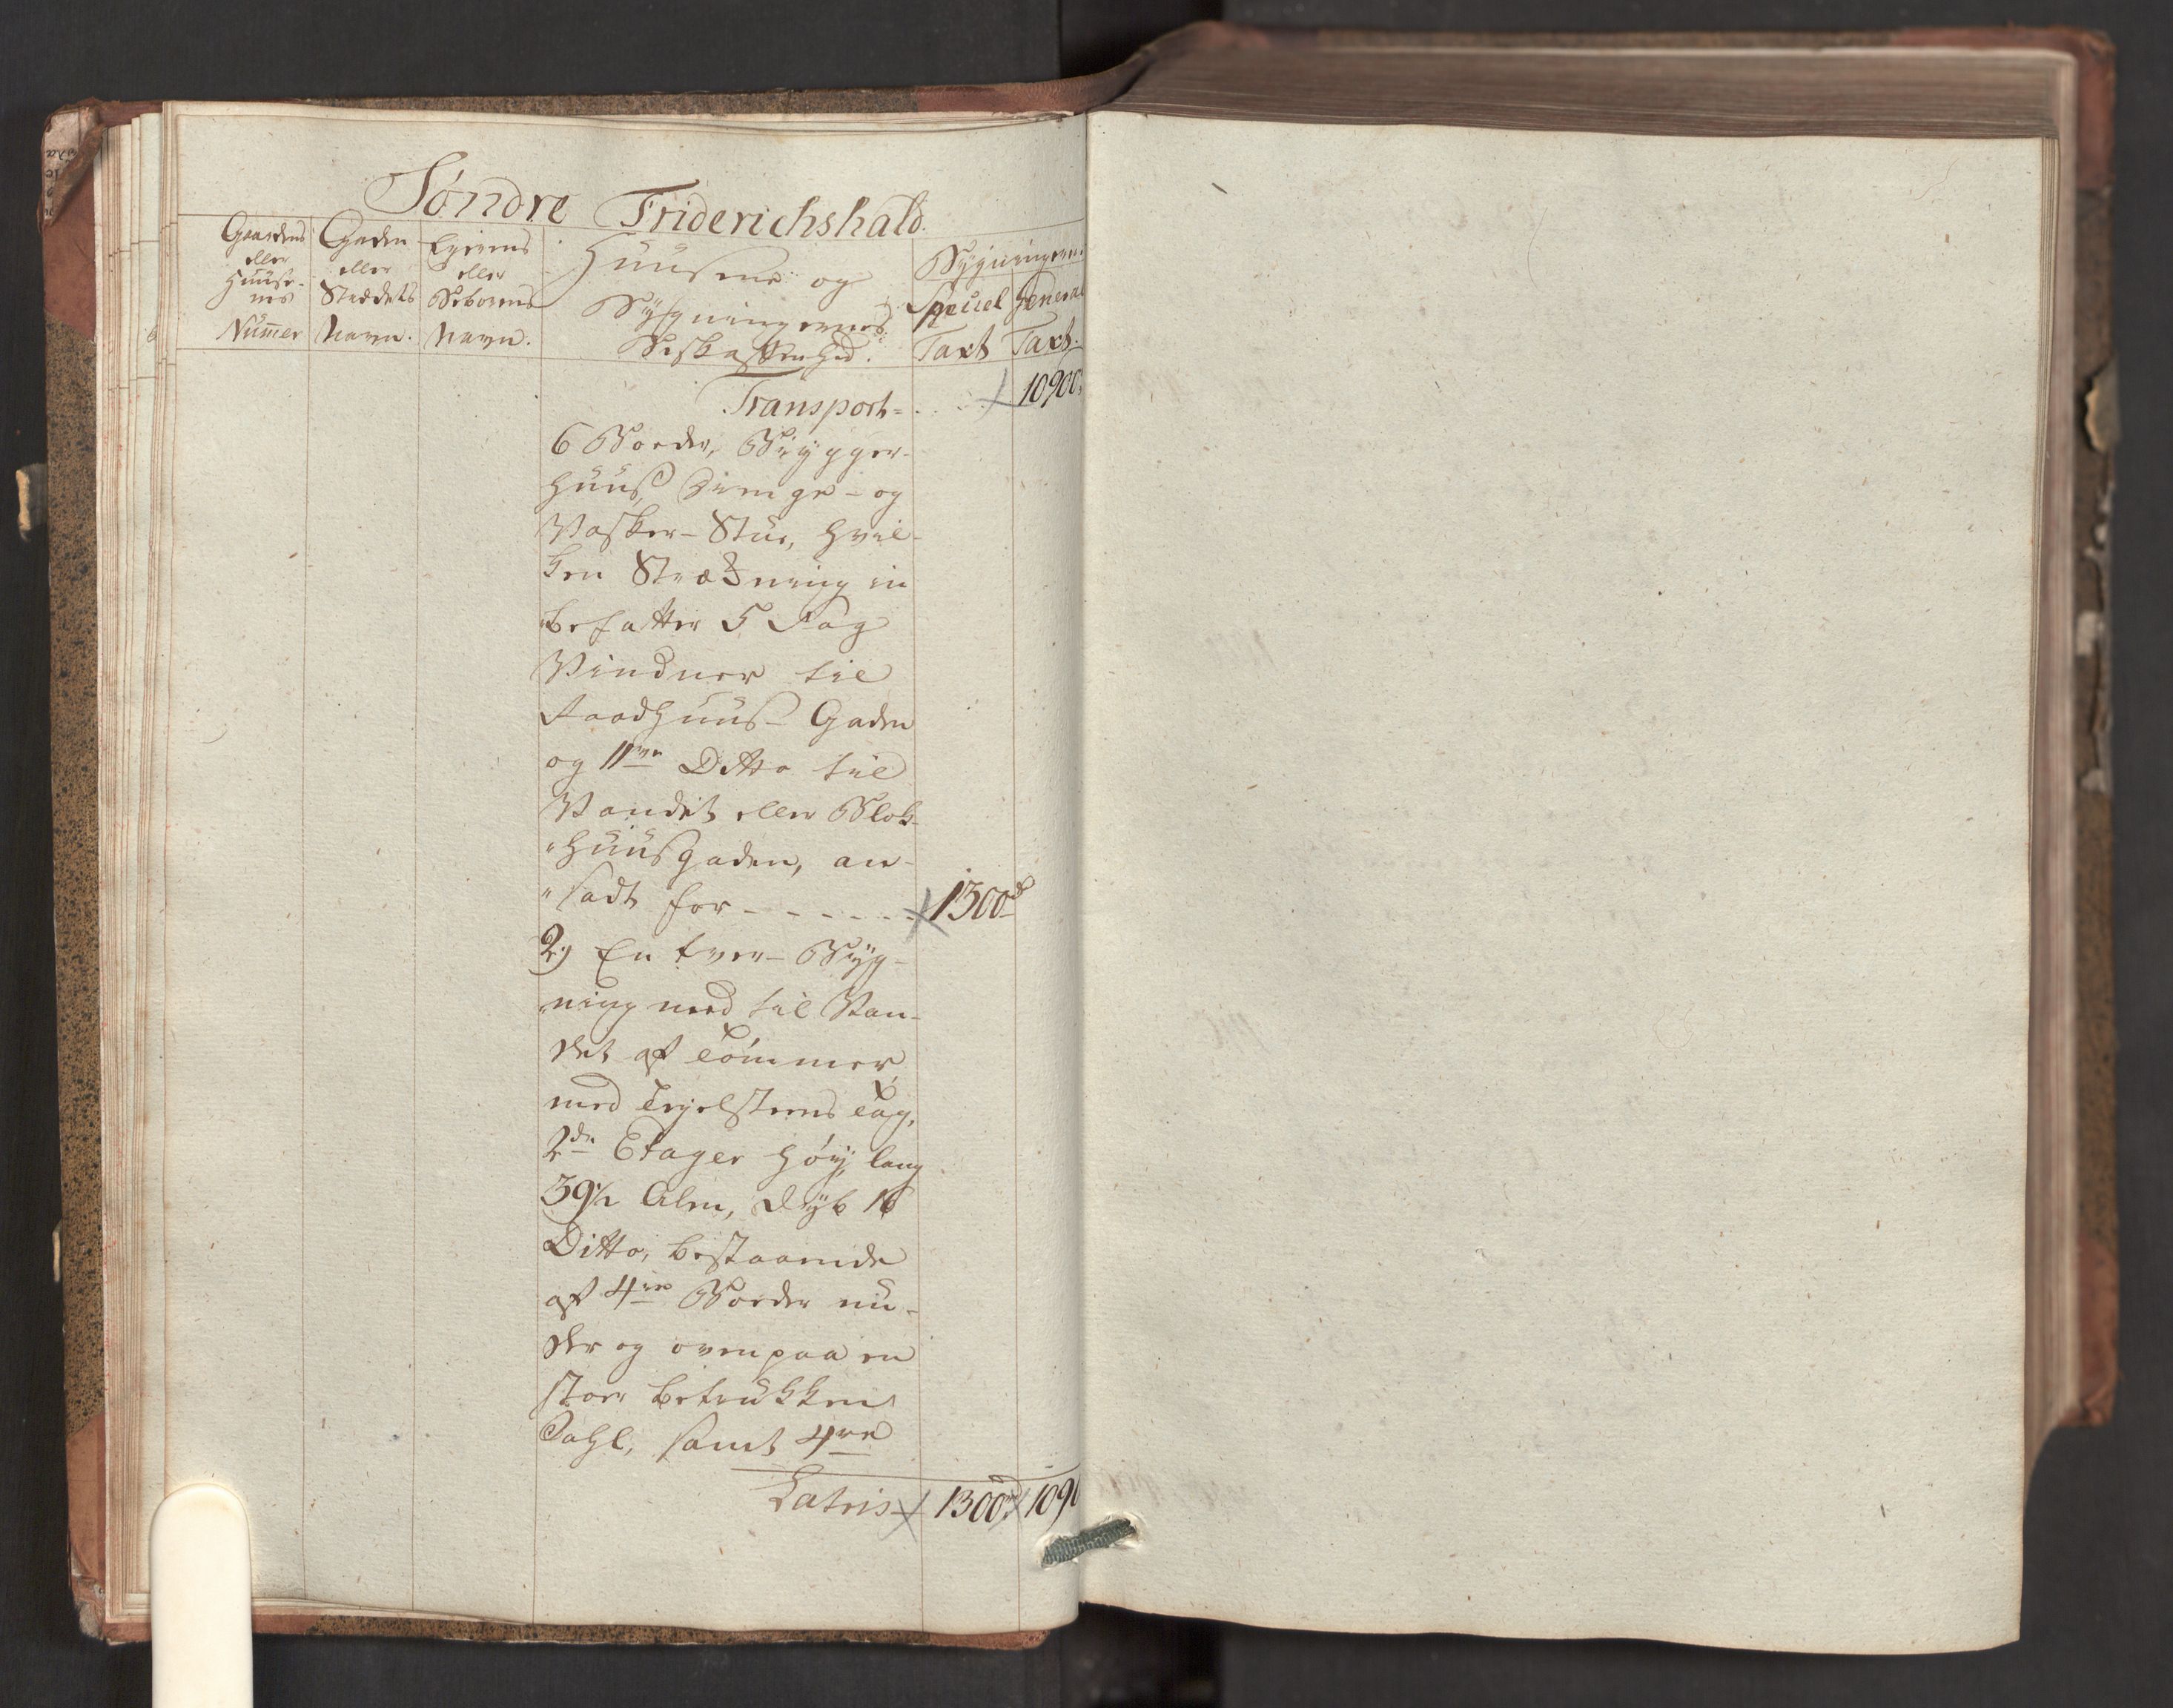 Søndre Friderichshald.
Gaardens eller Huuse- nes Numer
Gaden eller Strædets Navn.
Eyerens eller Beboerens Navn.
Huusene og Bygningernes Beskaffenhed.
Bygningernes
Speciel Taxt
General Taxt.
Transport = . . . 10900
6 Boeder, Brygger-
huus, Drenge- og
Vasker-Stue, hvil-
ken Strækning in
befatter 5 Fag
Vinduer til
Raadhuus- Gaden
og 11ve Ditto til
Vandet eller Blok-
huusgaden, an-
sadt for - - - - - - 1300
2) En tver- Byg-
ning ned til Van-
det af Tømmer,
med Tegelsteens Tag,
2de Etager høy, lang
39½ Alen, dyb 16
Ditto, bestaaende
af 4re Boeder un-
der og oven paa en
stoer betrukken
Sahl, samt 4re
Lateris 1300 1090